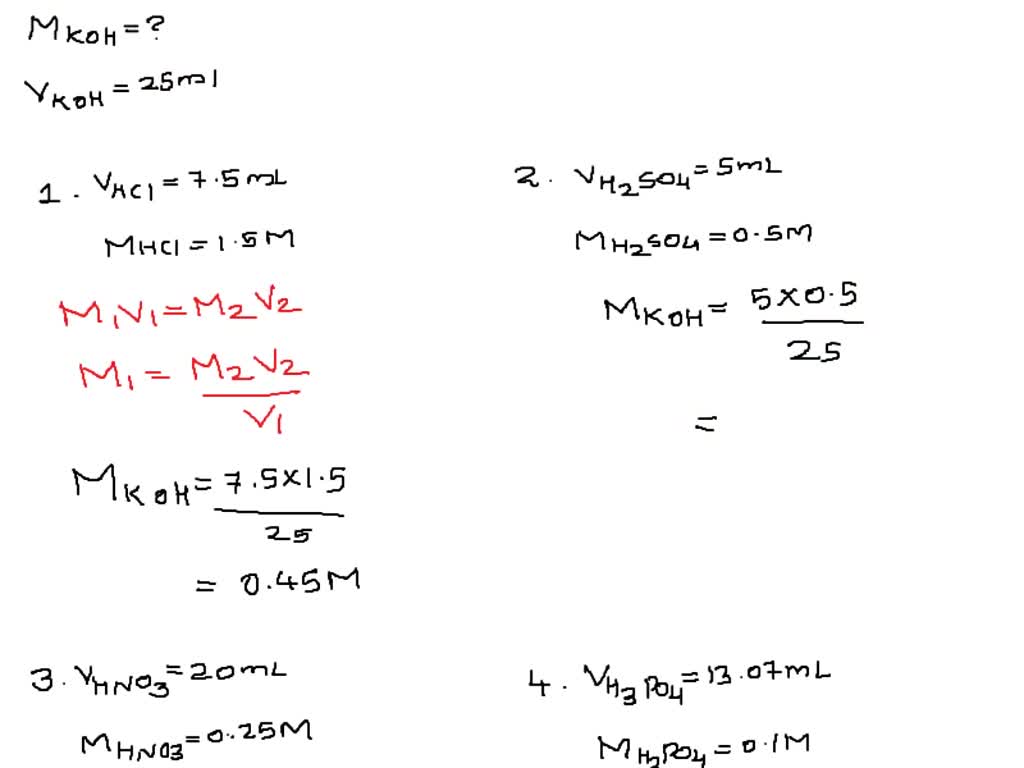 M KOH = ?
V KOH = 25ml
1. V HCl = 7.5mL
M HCl = 1.5M
M1V1 = M2V2
M1 = M2V2
V1
M KOH = 7.5×1.5
25
= 0.45M
2. V H2SO4 = 5mL
M H2SO4 = 0.5M
M KOH = 5×0.5
25
=
3. V HNO3 = 20mL
M HNO3 = 0.25M
4. V H3PO4 = 13.07mL
M H3PO4 = 0.1M